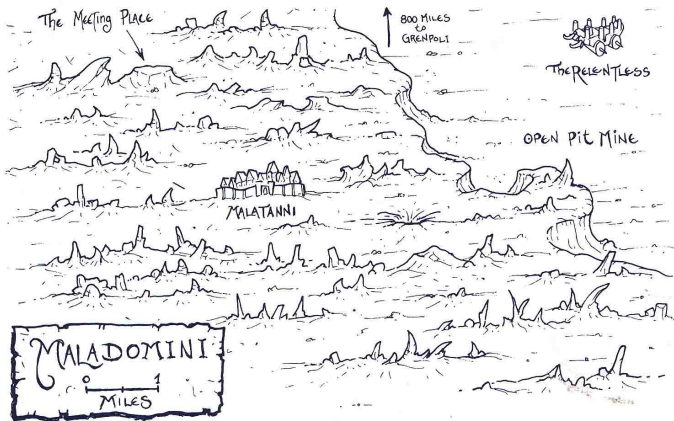 The Meeting Place
800 MILES
to
GRENPOLI
THE RELENTLESS
OPEN Pit MINE
MALATANNI
MALADOMINI
0 1
MILES